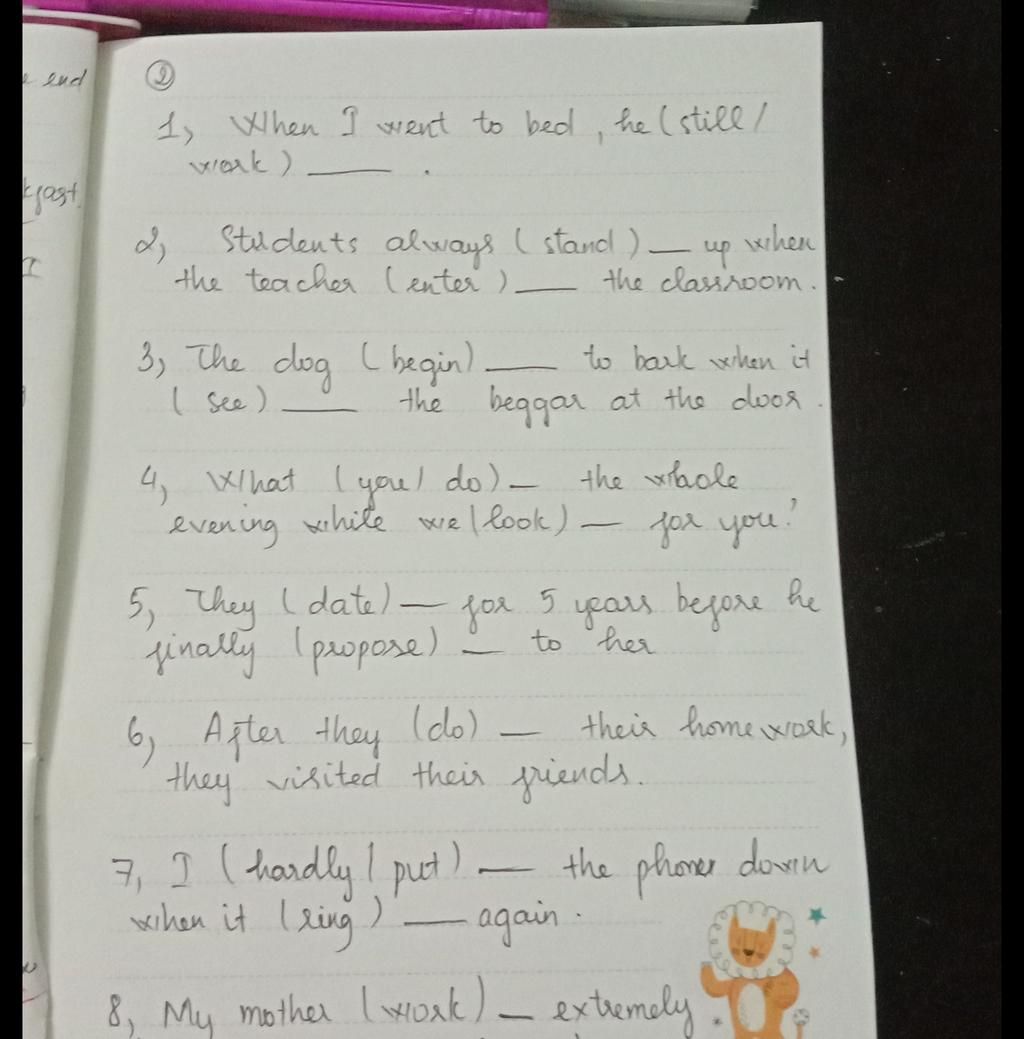 end
②
1, When I went to bed, he (still/
work) ____ .
2, Students always (stand) __ up when
the teacher (enter) ___ the classroom.
3, The dog (begin) ____ to bark when it
(see) ____ the beggar at the door.
4, What (you/ do) _ the whole
evening while we (look) __ for you?
5, They (date) __ for 5 years before he
finally (propose) __ to her
6, After they (do) __ their homework,
they visited their friends.
7, I (hardly / put) ___ the phone down
when it (ring) ____ again.
8, My mother (work) __ extremely